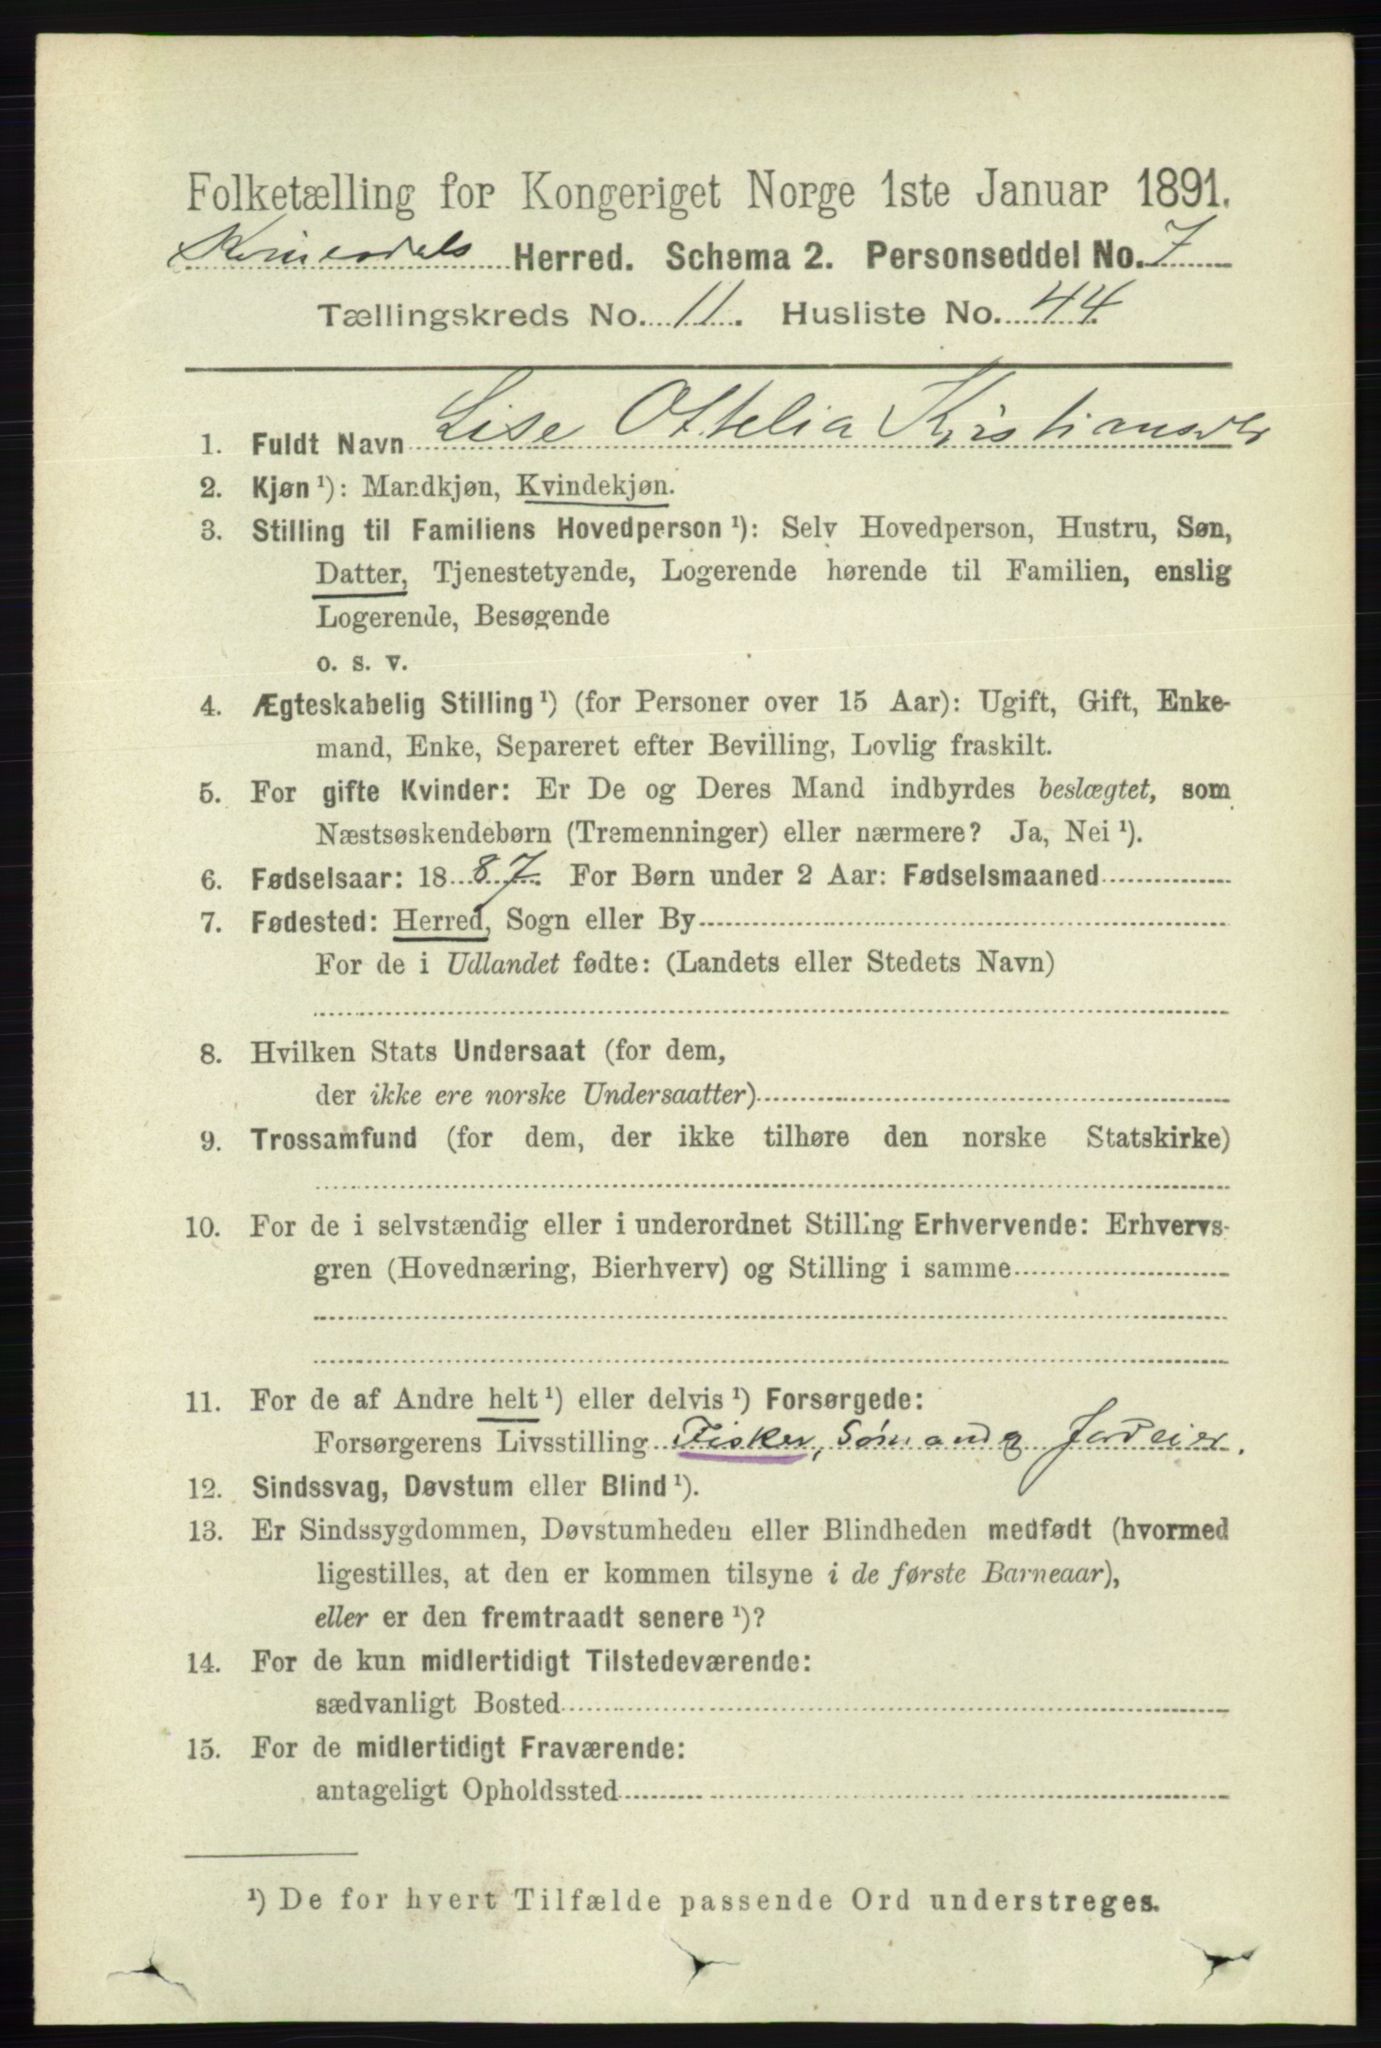 Folketælling for Kongeriget Norge 1ste Januar 1891.
Herred. Schema 2. Personseddel No. 7
Tællingskreds No. 11. Husliste No. 44
1. Fuldt Navn Lise Ottelia Kristiansdtr
2. Kjøn ¹): Mandkjøn, Kvindekjøn.
3. Stilling til Familiens Hovedperson ¹): Selv Hovedperson, Hustru, Søn,
Datter, Tjenestetyende, Logerende hørende til Familien, enslig
Logerende, Besøgende
o. s. v.
4. Ægteskabelig Stilling ¹) (for Personer over 15 Aar): Ugift, Gift, Enke-
mand, Enke, Separeret efter Bevilling, Lovlig fraskilt.
5. For gifte Kvinder: Er De og Deres Mand indbyrdes beslægtet, som
Næstsøskendebørn (Tremenninger) eller nærmere? Ja, Nei ¹).
6. Fødselsaar: 1887. For Børn under 2 Aar: Fødselsmaaned
7. Fødested: Herred, Sogn eller By
For de i Udlandet fødte: (Landets eller Stedets Navn)
8. Hvilken Stats Undersaat (for dem,
der ikke ere norske Undersaatter)
9. Trossamfund (for dem, der ikke tilhøre den norske Statskirke)
10. For de i selvstændig eller i underordnet Stilling Erhvervende: Erhvervs-
gren (Hovednæring, Bierhverv) og Stilling i samme
11. For de af Andre helt ¹) eller delvis ¹) Forsørgede:
Forsørgerens Livsstilling Fisker, Sømand og Jordeier.
12. Sindssvag, Døvstum eller Blind ¹).
13. Er Sindssygdommen, Døvstumheden eller Blindheden medfødt (hvormed
ligestilles, at den er kommen tilsyne i de første Barneaar),
eller er den fremtraadt senere ¹)?
14. For de kun midlertidigt Tilstedeværende:
sædvanligt Bosted
15. For de midlertidigt Fraværende:
antageligt Opholdssted
¹) De for hvert Tilfælde passende Ord understreges.